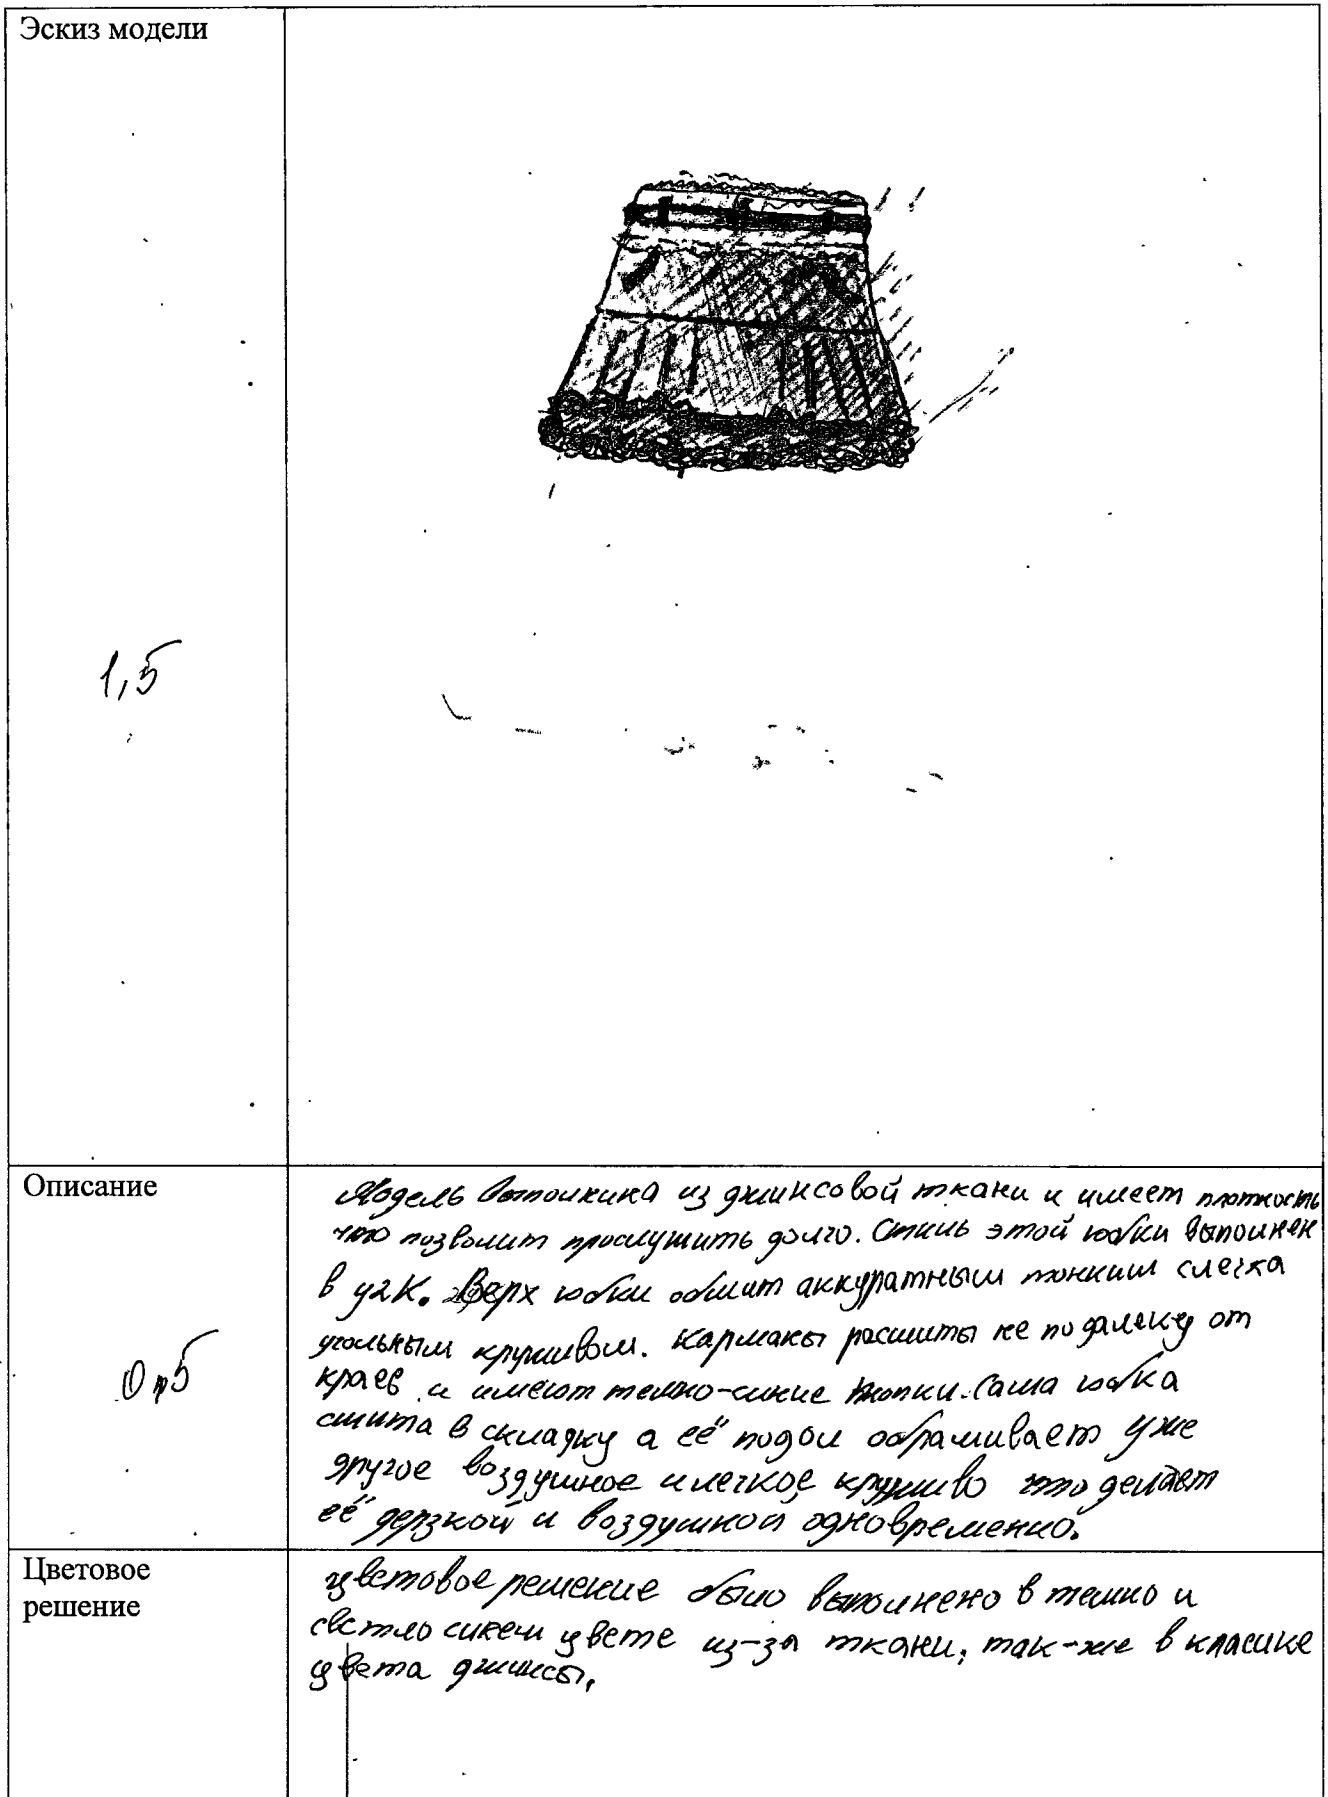 Эскиз модели
1,5
Описание
Модель выполнина из джинсовой ткани и имеет плотность
что позволит прослужить долго. Стиль этой юбки выполнен
в y2K. Верх юбки обшит аккуратным тонким слегка
угольным круживом. Карманы расшиты не подалеку от
краев и имеют темно-синие кнопки. Сама юбка
сшита в складку а её подол обрамивает уже
другое воздушное и легкое круживо что делает
её дерзкой и воздушной одновременно.
0,5
Цветовое
решение
цветовое решение было выполнено в темно и
светло синем цвете из-за ткани, так-же в класике
цвета джинсы,